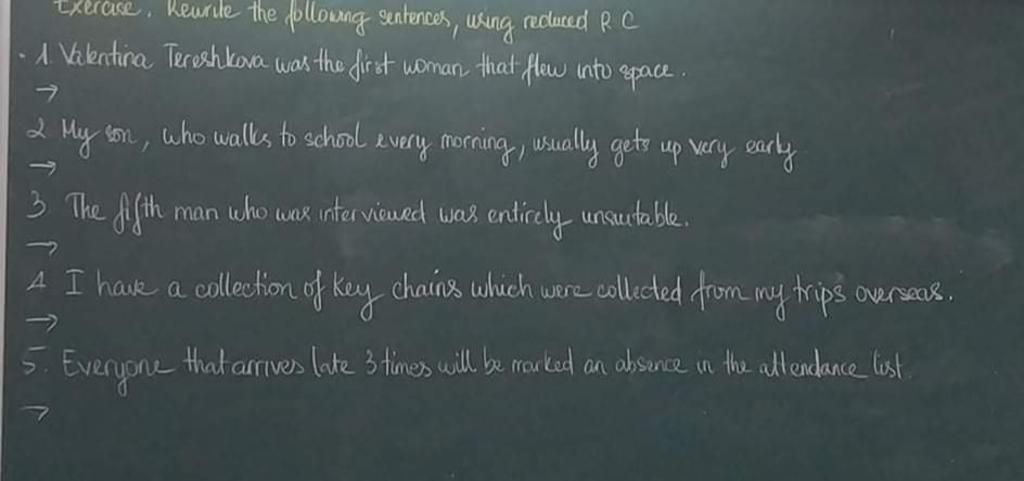 Exercise. Rewrite the following sentences, using reduced R C
1. Valentina Tereshkova was the first woman that flew into space.
→
2 My son, who walks to school every morning, usually gets up very early
→
3 The fifth man who was interviewed was entirely unsuitable.
→
4 I have a collection of key chains which were collected from my trips overseas.
→
5. Everyone that arrives late 3 times will be marked an absence in the attendance list.
→